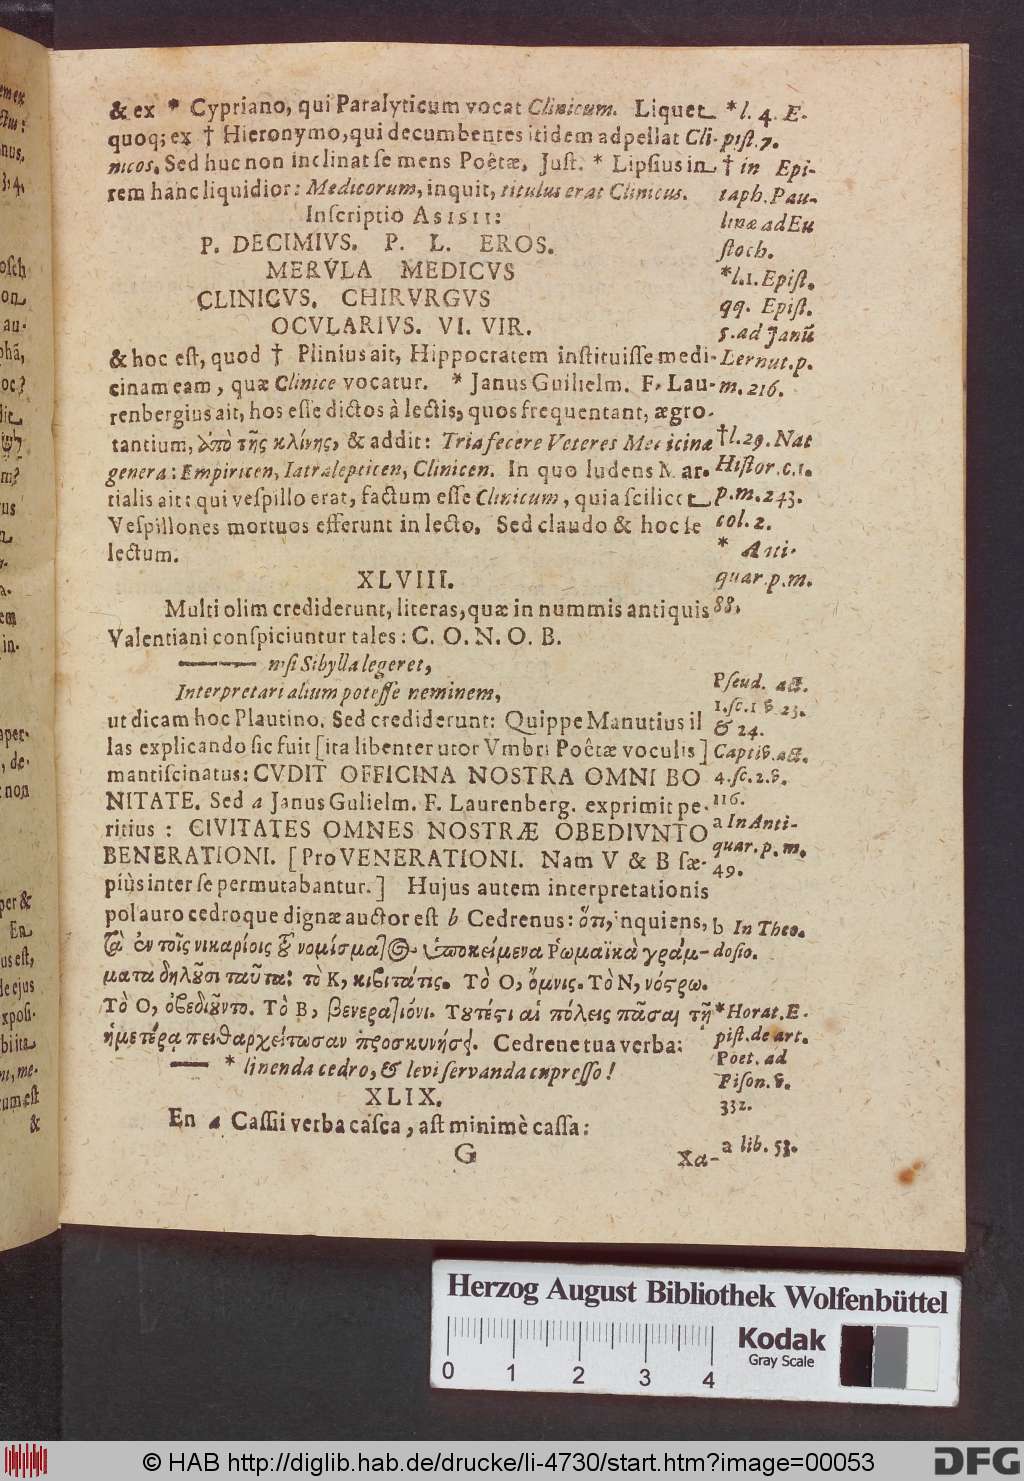 & ex * Cypriano, qui Paralyticum vocat Clinicum. Liquet
quoq; ex † Hieronymo, qui decumbentes itidem adpellat Cli-
nicos. Sed huc non inclinat se mens Poêtæ. Just. * Lipsius in
rem hanc liquidior: Medicorum, inquit, titulus erat Clinicus.
Inscriptio ASISII:
P. DECIMIVS. P. L. EROS.
MERVLA MEDICVS
CLINICVS. CHIRVRGVS
OCVLARIVS. VI. VIR.
& hoc est, quod † Plinius ait, Hippocratem instituisse medi-
cinam eam, quæ Clinice vocatur. * Janus Guilielm. F. Lau-
renbergius ait, hos esse dictos à lectis, quos frequentant, ægro-
tantium, ἀπὸ τῆς κλίνης, & addit: Tria fecere Veteres Medicinæ
genera: Empiricen, Iatralepticen, Clinicen. In quo ludens Mar-
tialis ait: qui vespillo erat, factum esse Clinicum, quia scilicet
Vespillones mortuos efferunt in lecto. Sed claudo & hoc se
lectum.
XLVIII.
Multi olim crediderunt, literas, quæ in nummis antiquis
Valentiani conspiciuntur tales: C. O. N. O. B.
nisi Sibylla legeret,
Interpretari alium potesse neminem,
ut dicam hoc Plautino. Sed crediderunt: Quippe Manutius il
las explicando sic fuit [ita libenter utor Vmbri Poêtæ voculis]
mantiscinatus: CVDIT OFFICINA NOSTRA OMNI BO
NITATE. Sed a Janus Gulielm. F. Laurenberg. exprimit pe-
ritius: CIVITATES OMNES NOSTRÆ OBEDIVNTO
BENERATIONI. [Pro VENERATIONI. Nam V & B sæ-
piùs inter se permutabantur.] Hujus autem interpretationis
pol auro cedroque dignæ auctor est b Cedrenus: ὅτι, inquiens,
Τὰ ἐν τοῖς νικαρίοις τοῦ νομίσματος ὑποκείμενα Ῥωμαϊκὰ γράμ-
ματα δηλοῦσι ταῦτα: τὸ Κ, κιβιτάτις. Τὸ Ο, ὄμνις. Τὸ Ν, νόστρω.
Τὸ Ο, ὀβεδιοῦντο. Τὸ Β, βενερατιόνι. Τουτέστι αἱ πόλεις πᾶσαι τῇ
ἡμετέρᾳ πειθαρχείτωσαν προσκυνήσει. Cedrene tua verba:
* linenda cedro, & levi servanda cupresso!
XLIX.
En a Cassii verba casca, ast minimè cassa:
G
Xa-
* l. 4. E-
pist. 7.
† in Epi-
taph. Pau-
linæ ad Eu
stoch.
* l. 1. Epist.
qq. Epist.
5. ad Janū
Lernut. p.
m. 216.
† l. 29. Nat
Histor. c. 1.
p. m. 243.
col. 2.
* Anti-
quar. p. m.
88.
Pseud. act.
1. sc. 1 v. 23.
& 24.
Captiv. act.
4. sc. 2. v.
116.
a In Anti-
quar. p. m.
49.
b In Theo-
dosio.
* Horat. E-
pist. de art.
Poet. ad
Pison. v.
332.
a lib. 53.
Herzog August Bibliothek Wolfenbüttel
Kodak
Gray Scale
0 1 2 3 4
© HAB http://diglib.hab.de/drucke/li-4730/start.htm?image=00053
DFG